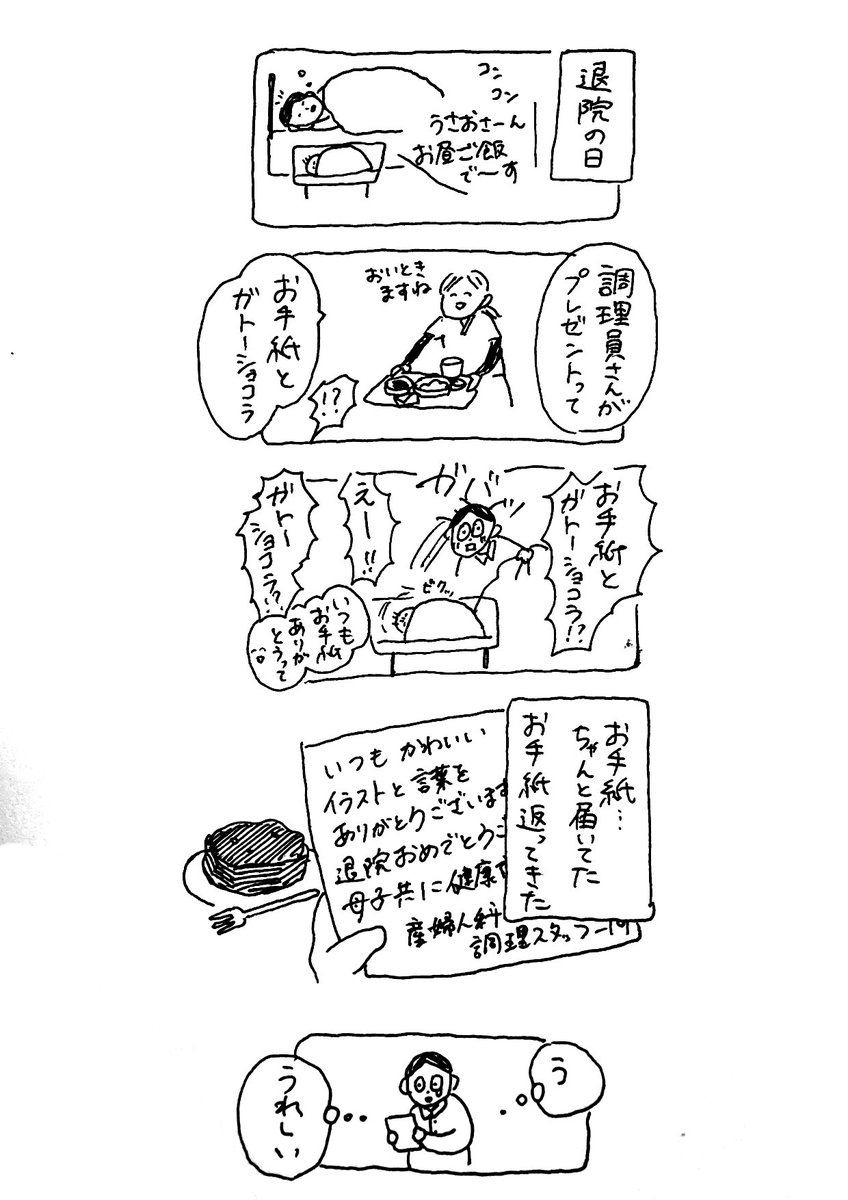 退院の日
コン
コン
うさおさーん
お昼ご飯
で〜す
調理員さんが
プレゼントって
おいとき
ますね
お手紙と
ガトーショコラ
!?
お手紙と
ガトーショコラ!?
ガバッ
えー!!
ガトー
ショコラ!?
ビクッ
いつも
お手紙
ありが
とうって
お手紙…
ちゃんと届いてた
お手紙返ってきた
いつもかわいい
イラストと言葉を
ありがとうございます
退院おめでとうご
母子共に健康
産婦人科
調理スタッフ一同
う
うれしい